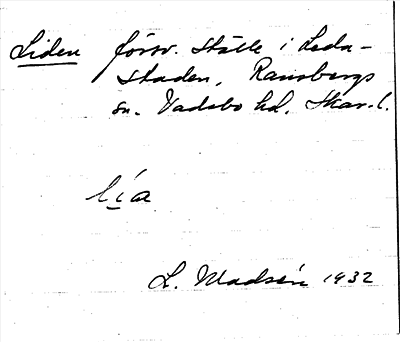 Liden försv. ställe i Leda-
staden, Ransbergs
sn. Vadsbo hd. Skar. l.
lía
L. Madsén 1932